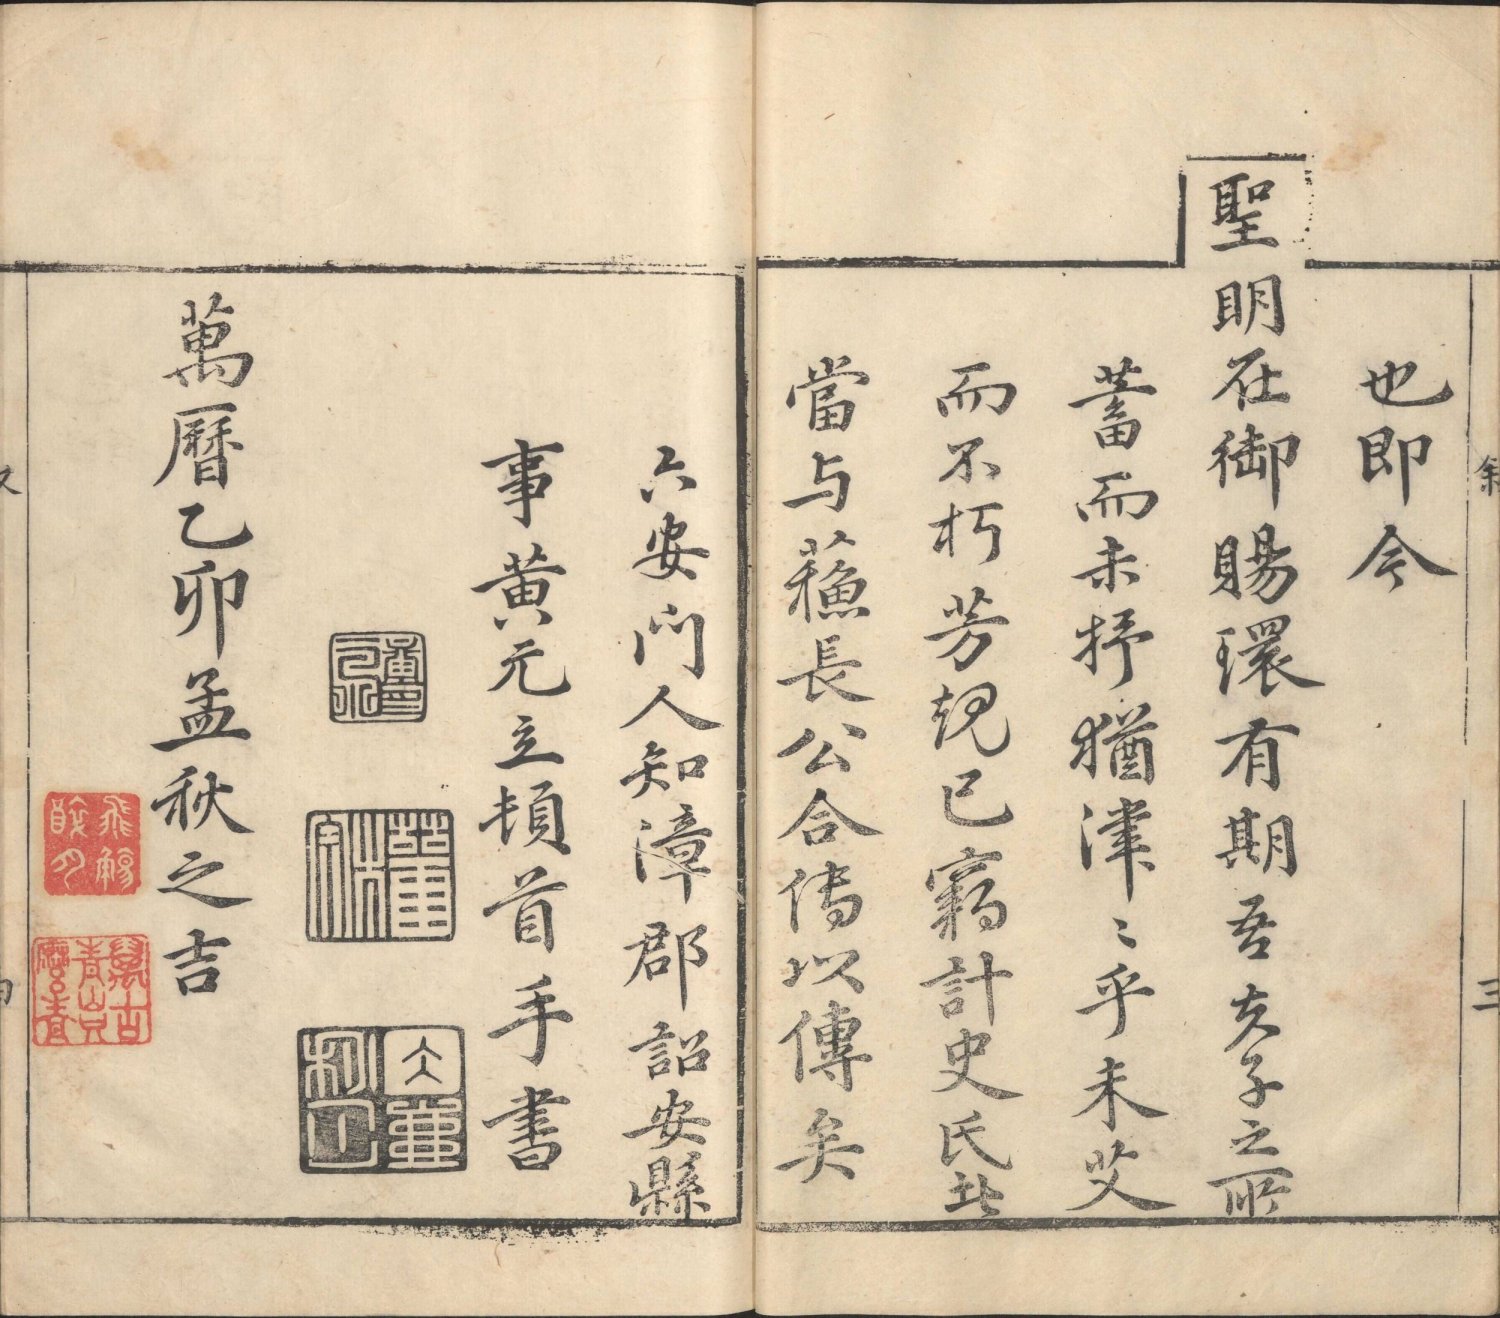 也即今
聖明在御賜環有期吾夫子之所
蓄而未抒猶津〻乎未艾
而不朽芳規已竊計史氏北
當与蘓長公合傳以傳矣
六安门人知漳郡詔安縣
事黄元立頓首手書
萬曆乙卯孟秋之吉
叙
三